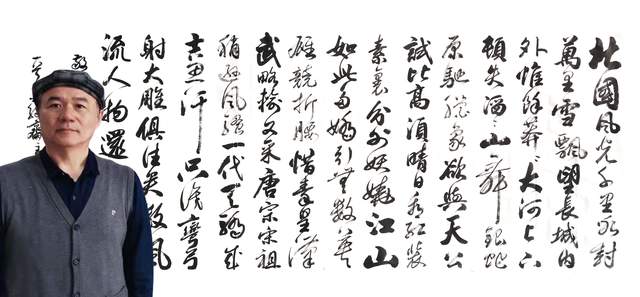 北國風光千里冰封
萬里雪飄望長城內
外惟餘莽〻大河上下
頓失滔〻山舞銀蛇
原馳蠟象欲與天公
試比高須晴日看紅裝
素裹分外妖嬈江山
如此多嬌引無數英
雄競折腰惜秦皇漢
武略輸文采唐宗宋祖
稍遜風騷一代天驕成
吉思汗只識彎弓
射大雕俱往矣數風
流人物還